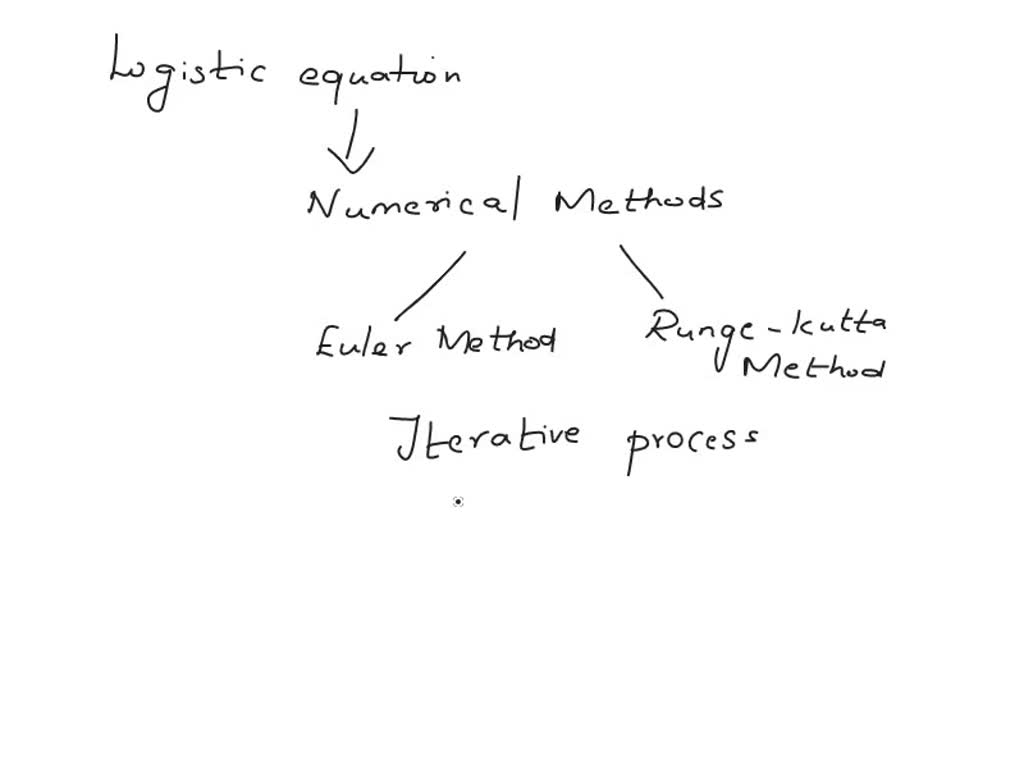 Logistic equation
Numerical Methods
Euler Method
Runge-Kutta
Method
Iterative process